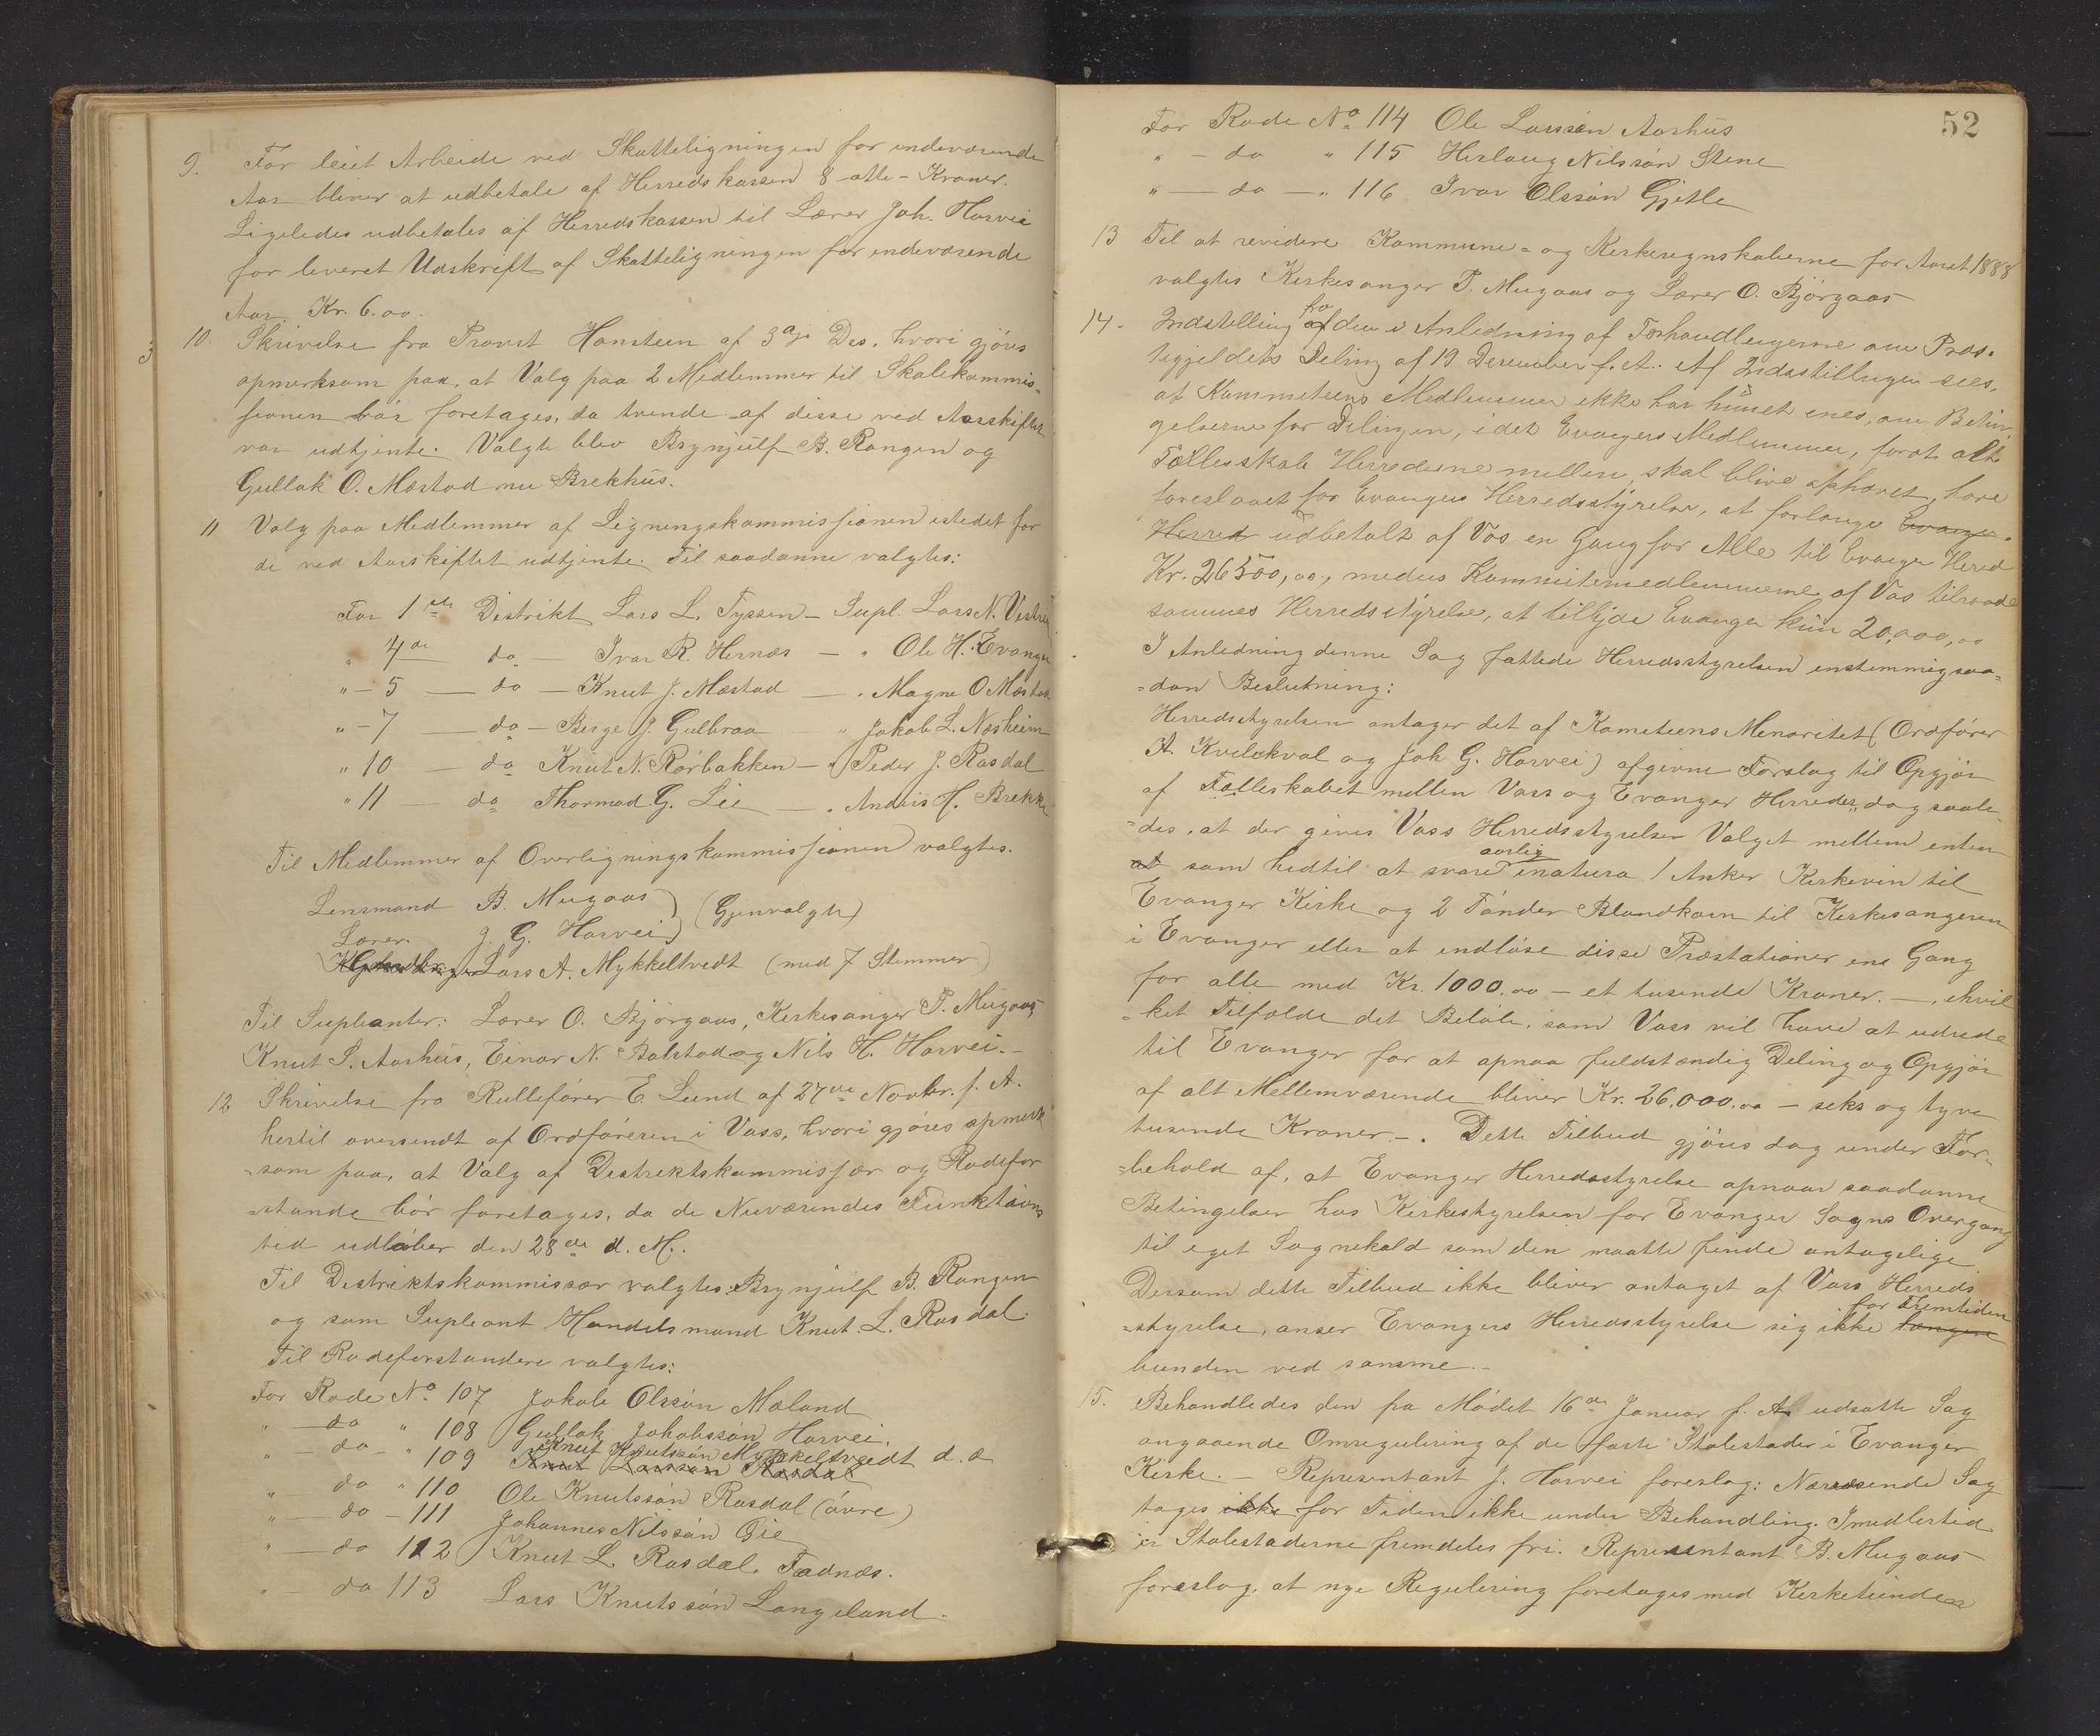 9. For leiet Arbeide ved Skatteligningen for indeværende
Aar bliver at udbetale af Herredskassen 8 -otte- Kroner.
Ligeledes udbetales af Herredskassen til Lærer Joh. Horvei
for leveret Udskrift af Skatteligningen for indeværende
Aar. Kr. 6.00.
10. Skrivelse fra Provst Hansteen af 3die Des. hvori gjöres
opmerksom paa, at Valg paa 2 Medlemmer til Skolekommis=
sionen bör foretages, da tvende af disse ved Aarskiftet
var udtjente. Valgte blev Brynjulf B. Rongen og
Gullak O. Mæstad nu Brekhus.
11 Valg paa Medlemmer af Ligningskommissionen istedet for
de ved Aarskiftet udtjente. Til saadanne valgtes:
For 1ste Distrikt Lars L. Fyssen - Supl. Lars N. Vestrei
" 4de do - Ivar R. Hernæs - " Ole H. Evanger
" - 5 - do - Knut J. Mæstad - " Magne O Mæstad
" - 7 - do - Berge J. Gulbraa " Jakob L. Næsheim
" 10 - do Knut N. Rörbakken - " Peder J. Rasdal
" 11 - do Thormod G. Lie - " Andris H. Brekke
Til Medlemmer af Overligningskommissionen valgtes.
Lensmand B. Mugaas
Lærer J. G. Horvei (Gjenvalgte)
Lars A. Mykkeltvedt (med 7 Stemmer)
Til Supleanter: Lærer O. Bjørgaas, Kirkesanger P. Mugaas,
Knut S. Aarhus, Einar N. Bolstad og Nils H. Horvei.-
12 Skrivelse fra Rullefører E. Lund af 27de Novbr. f. A.
hertil oversendt af Ordføreren i Voss, hvori gjöres opmerk
=som paa, at Valg af Distriktskommissær og Rodefor
=stande bör foretages, da de Nuværendes Funktions
tid udlöber den 28de d. M.
Til Distriktskommissær valgtes: Brynjulf B. Rongen
og som Supleant Handelsmand Knut L. Rasdal.
Til Rodeforstandere valgtes:
For Rode No 107 Jakob Olssön Mæland
" do " 108 Gullak Jakobssön Horvei.
" - do - " 109 Knut Knutssön Mykkeltveedt d. æ
Knut Larssön Rasdal
" do " 110 Ole Knutssön Rasdal (övre)
" - do - 111 Johannes Nilssön Gie
" - do 112 Knut L. Rasdal, Fadnæs.
" - do 113 Lars Knutssön Langeland.
52
For Rode No 114 Ole Larssön Aarhus
" - do " 115 Herlaug Nilssön Stene
" - do - " 116 Ivar Olssön Gjetle
13 Til at revidere Kommune- og Kirkeregnskaberne for Aaret 1888
valgtes Kirkesanger P. Mugaas og Lærer O. Bjørgaas
14. Indstilling af fra den i Anledning af Forhandlingerne om Præs-
tegjeldets Deling af 19 December f. A. Af Indstillingen sees,
at Kommiteens Medlemmer ikke har kunnet enes, om Betin-
gelserne for Delingen, idet Evangers Medlemmer, forat alt
Fællesskab Herrederne mellem, skal blive ophævet, have
foreslaaet for Evangers Herredsstyrelse, at forlange Evanger
Herred udbetalt af Vos en Gang for Alle til Evanger Hered
Kr. 26500,00, medens Kommitemedlemmerne af Vos tilraade
sammes Herredsstyrelse, at tilbyde Evanger kun 20,000,00
I Anledning denne Sag fattede Herredsstyrelsen enstemmig saa=
=dan Beslutning:
Herredsstyrelsen antager det af Komiteens Menoritet (Ordfører
A. Kvilekval og Joh G. Horvei) afgivne Forslag til Opgjör
af Fælleskabet mellem Voss og Evanger Herreder, dog saale
=des, at der gives Voss Herredsstyrelse Valget mellem enten
at som hidtil at svare aarlig inatura 1 Anker Kirkevin til
Evanger Kirke og 2 Tönder Blandkorn til Kirkesangeren
i Evanger eller at indlöse disse Præstationer ene Gang
for alle med Kr. 1000.00 - et tusende Kroner. -, ihvil
=ket Tilfælde det Belöb, som Voss vil have at udrede
til Evanger for at opnaa fuldstændig Deling og Opgjör
af alt Mellemværende bliver Kr. 26,000.00 - seks og tyve
tusende Kroner -. Dette Tilbud gjöres dog under For-
=behold af, at Evanger Herredsstyrelse opnaar saadanne
Betingelser hos Kirkestyrelsen for Evanger Sogns Overgang
til eget Sognekald som den maatte finde antagelige
Dersom dette Tilbud ikke bliver antaget af Voss Herreds
=styrelse, anser Evangers Herredsstyrelse sig ikke længere for Fremtiden
bunden ved samme.-
15. Behandledes den fra Mödet 16de Januar f. A. udsatte Sag
angaaende Omregulering af de faste Stolestader i Evanger
Kirke. - Representant J. Horvei foreslog: Nærværende Sag
tages ikke for Tiden ikke under Behandling. Imidlertid
er Stolestaderne fremdeles fri. Representant B. Mugaas
foreslog, at nye Regulering foretages med Kirketiender